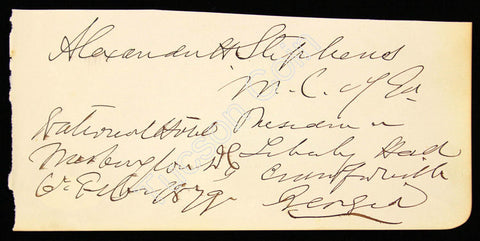 Alexander H Stephens
M. C. of Ga
National Hotel Residence
Washington D C Liberty Hall
6th Feby 1879 Crawfordville
Georgia